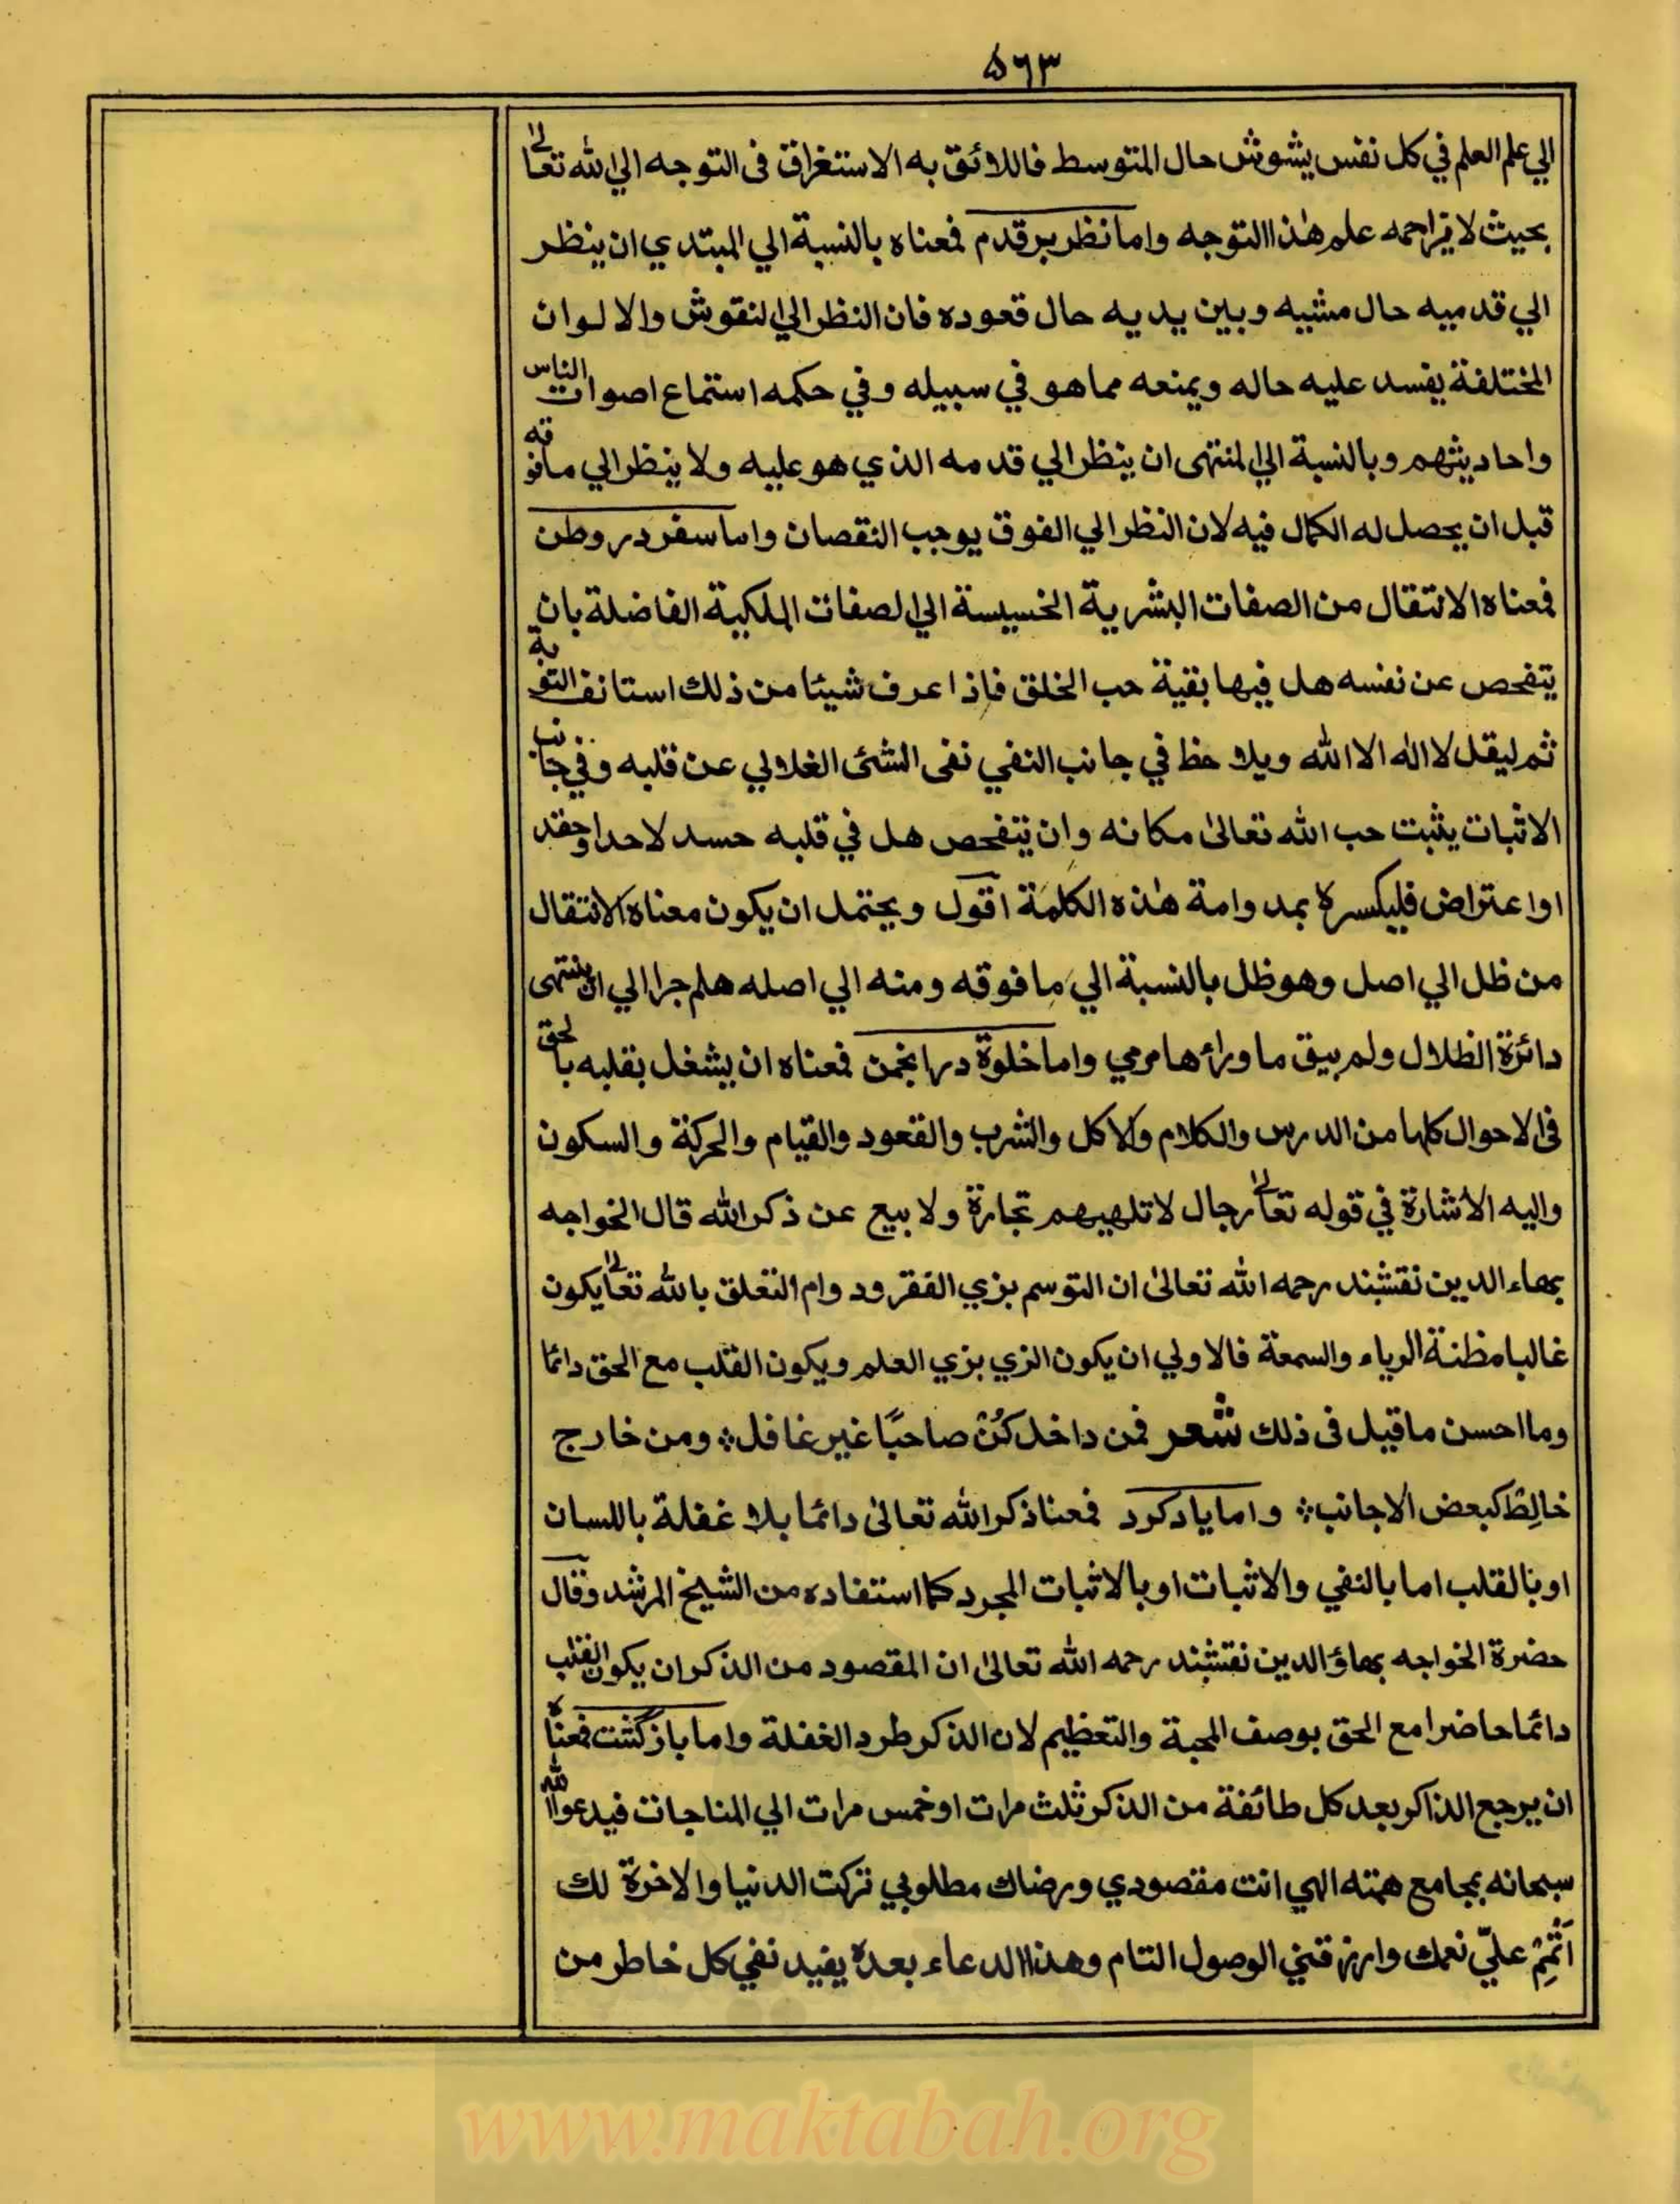 ۵۶۳
الي علم العلم في كل نفس يشوش حال المتوسط فاللائق به الاستغراق فى التوجه الي الله تعالىٰ
بحيث لا يزاحمه علم هٰذا التوجه واما نظر بر قدم فمعناه بالنسبة الي المبتدي ان ينظر
الي قدميه حال مشيه وبين يديه حال قعوده فان النظر الي النقوش والالوان
المختلفة يفسد عليه حاله ويمنعه مما هو في سبيله وفي حكمه استماع اصوات الناس
واحاديثهم وبالنسبة الي المنتهى ان ينظر الي قدمه الذي هو عليه ولا ينظر الي ما فوقه
قبل ان يحصل له الكمال فيه لان النظر الي الفوق يوجب النقصان واما سفر در وطن
فمعناه الانتقال من الصفات البشرية الخسيسة الي الصفات الملكية الفاضلة بان
يتفحص عن نفسه هل فيها بقية حب الخلق فاذا عرف شيئا من ذلك استانف التوبة
ثم ليقل لا اله الا الله ويلاحظ في جانب النفي نفى الشئ الغلالي عن قلبه وفي جانب
الاثبات يثبت حب الله تعالىٰ مكانه وان يتفحص هل في قلبه حسد لاحد او حقد
او اعتراض فليكسره بمداومة هٰذه الكلمة اقول ويحتمل ان يكون معناه الانتقال
من ظل الي اصل وهو ظل بالنسبة الي ما فوقه ومنه الي اصله هلم جرا الي ان ينتهى
دائرة الظلال ولم يبق ما ورائها مرمي واما خلوة در انجمن فمعناه ان يشغل بقلبه بالحق
فى الاحوال كلها من الدرس والكلام والاكل والشرب والقعود والقيام والحركة والسكون
واليه الاشارة في قوله تعالىٰ رجال لا تلهيهم تجارة ولا بيع عن ذكر الله قال الخواجه
بهاء الدين نقشبند رحمه الله تعالىٰ ان التوسم بزي الفقر ودوام التعلق بالله تعالىٰ يكون
غالبا مظنة الرياء والسمعة فالاولي ان يكون الزي بزي العلم ويكون القلب مع الحق دائما
وما احسن ما قيل فى ذلك شعر فمن داخل كُنْ صاحبًا غير غافل ؞ ومن خارج
خالِطْ كبعض الاجانب ؞ واما ياد كرد فمعنا ذكر الله تعالىٰ دائما بلا غفلة باللسان
او بالقلب اما بالنفي والاثبات او بالاثبات المجرد كما استفاده من الشيخ المرشد وقال
حضرة الخواجه بهاؤ الدين نقشبند رحمه الله تعالىٰ ان المقصود من الذكر ان يكون القلب
دائما حاضرا مع الحق بوصف المحبة والتعظيم لان الذكر طرد الغفلة واما باز گشت فمعناه
ان يرجع الذاكر بعد كل طائفة من الذكر ثلث مرات او خمس مرات الي المناجات فيدعوا الله
سبحانه بمجامع همته الهي انت مقصودي ورضاك مطلوبي تركت الدنيا والاخرة لك
اَتْمِمْ عليّ نعمك وارزقني الوصول التام وهذا الدعاء بعده يفيد نفي كل خاطر من
www.maktabah.org